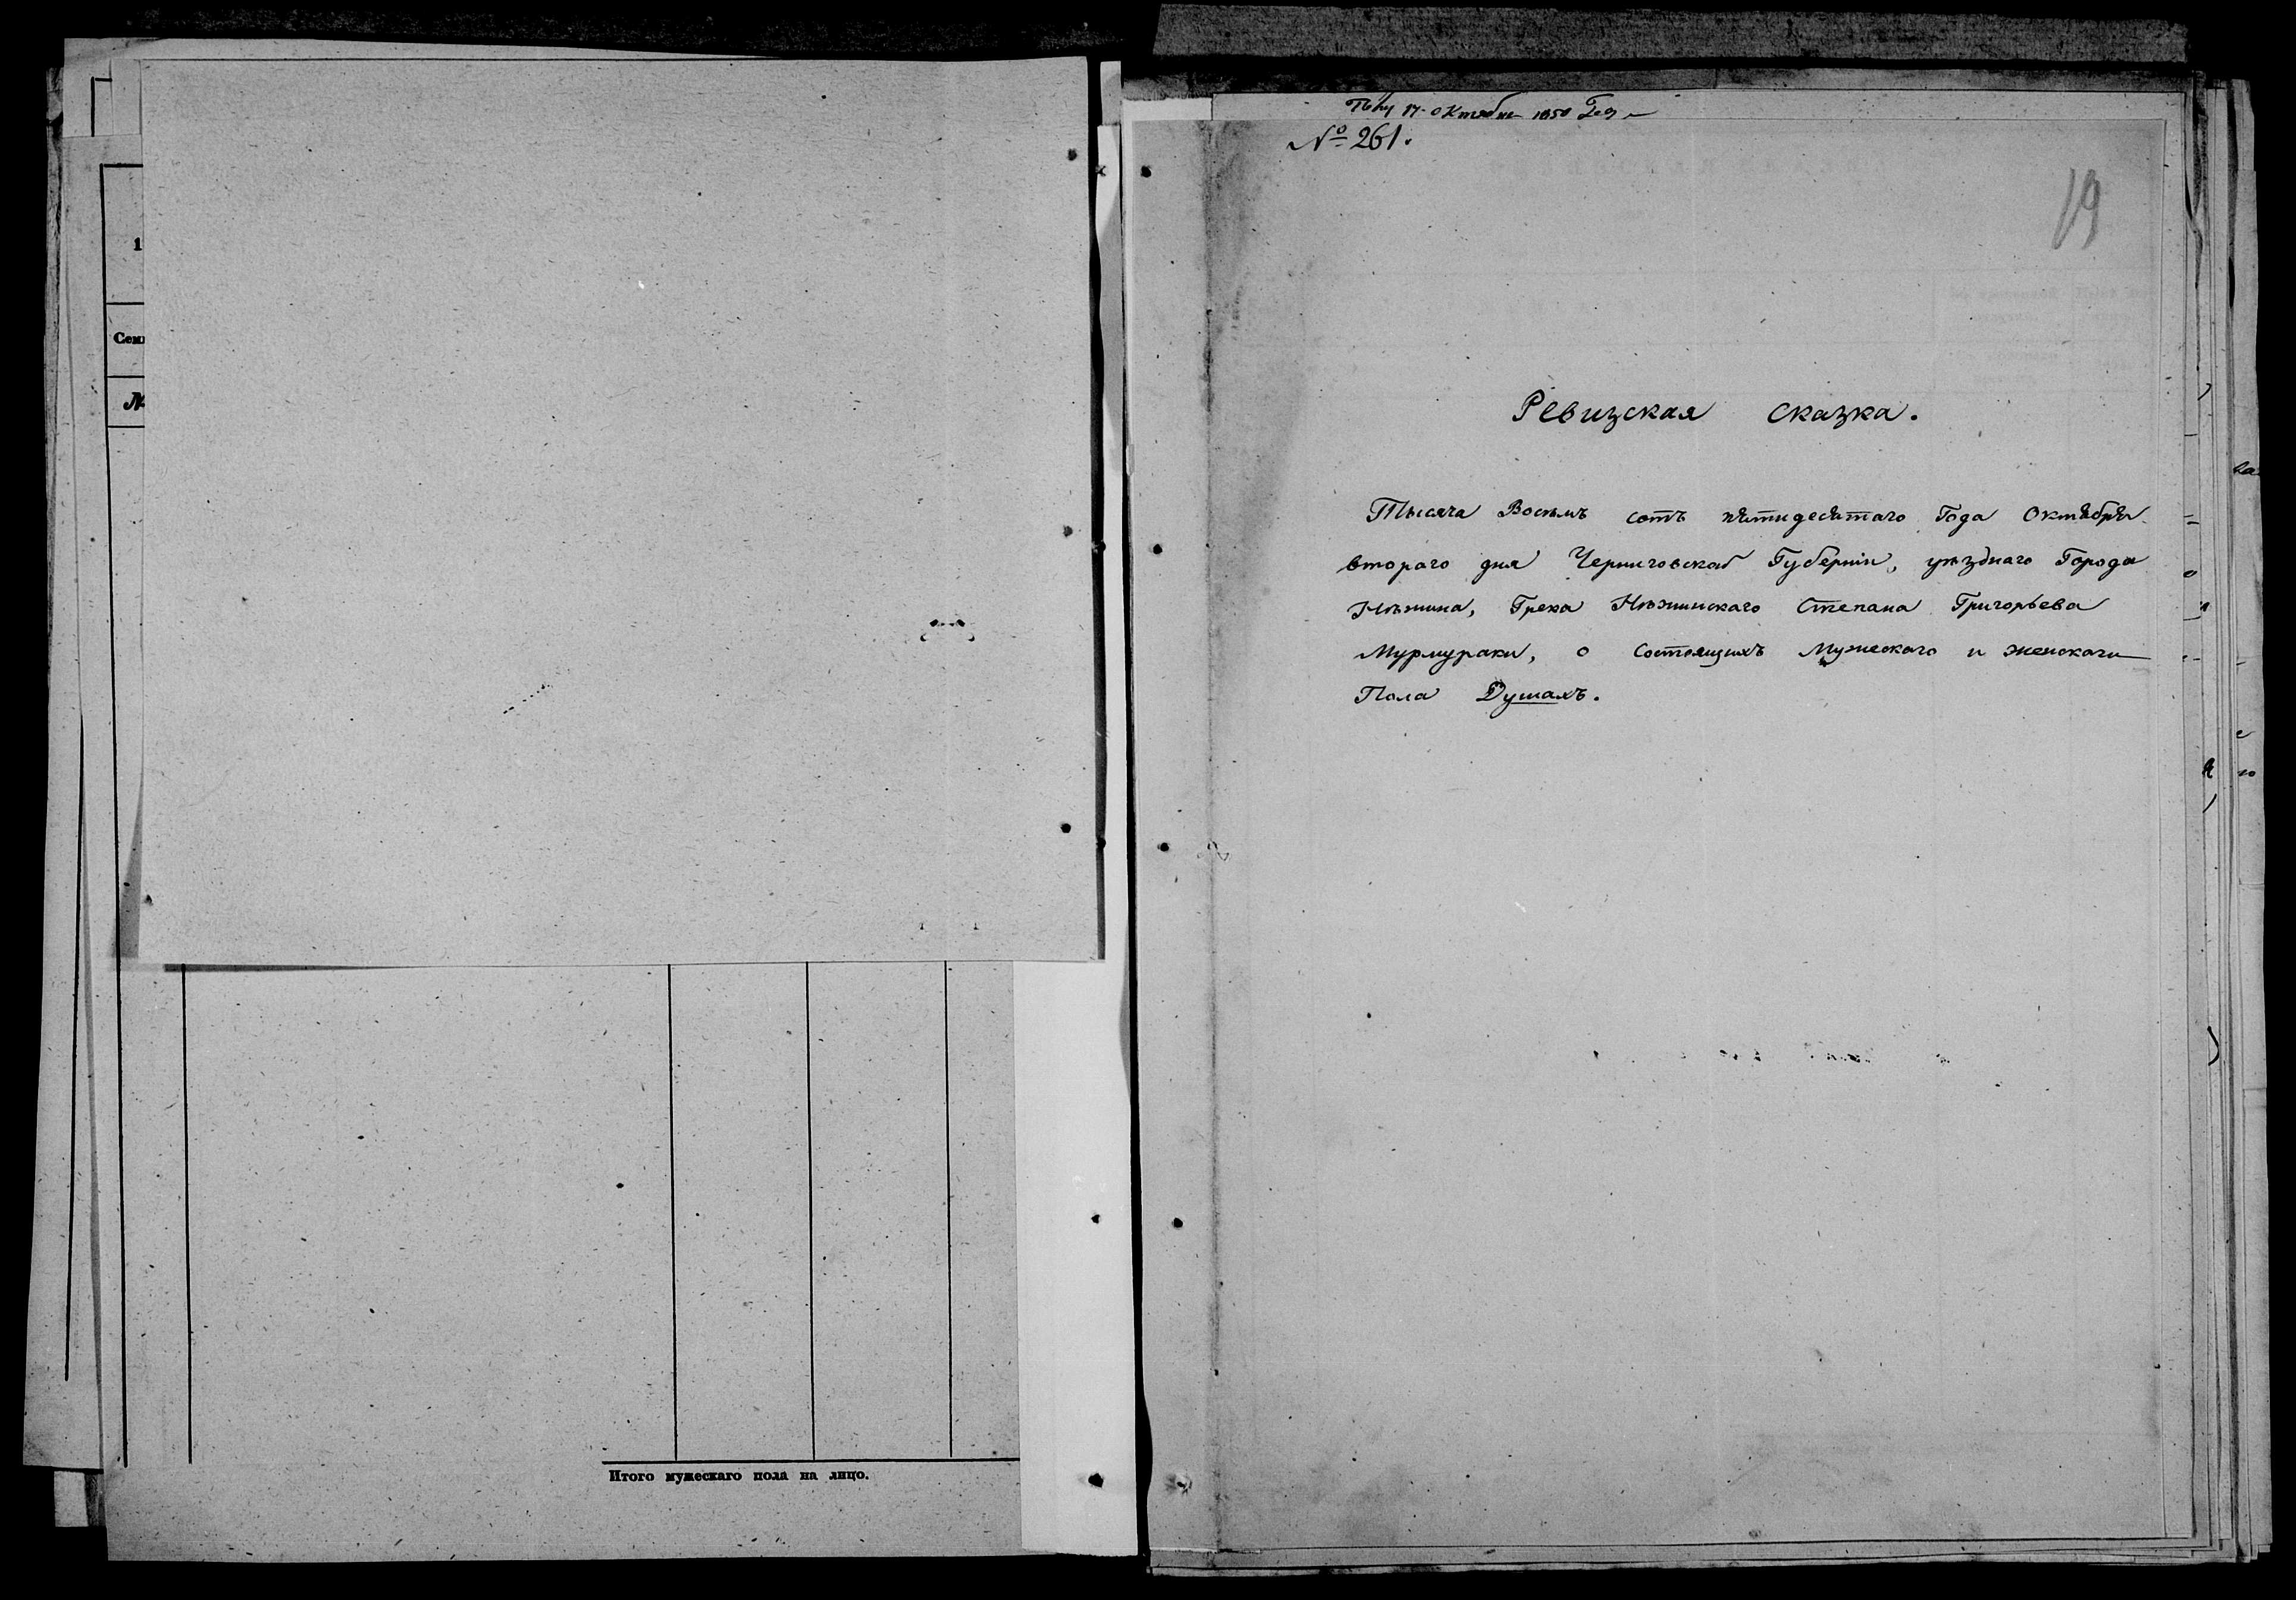 1
Сем
№
Итого мужескаго пола на лицо.
17 Октября 1850
№ 261.
19
Ревизская сказка.
Тысяча Восемь сотъ пятидесятаго Года Октября
втораго дня Черниговской Губерніи, уѣзднаго Города
Нѣжина, Грека Нѣжинскаго Степана Григорьева
Мурмураки, о состоящихъ Мужескаго и женскаго
Пола Душахъ.